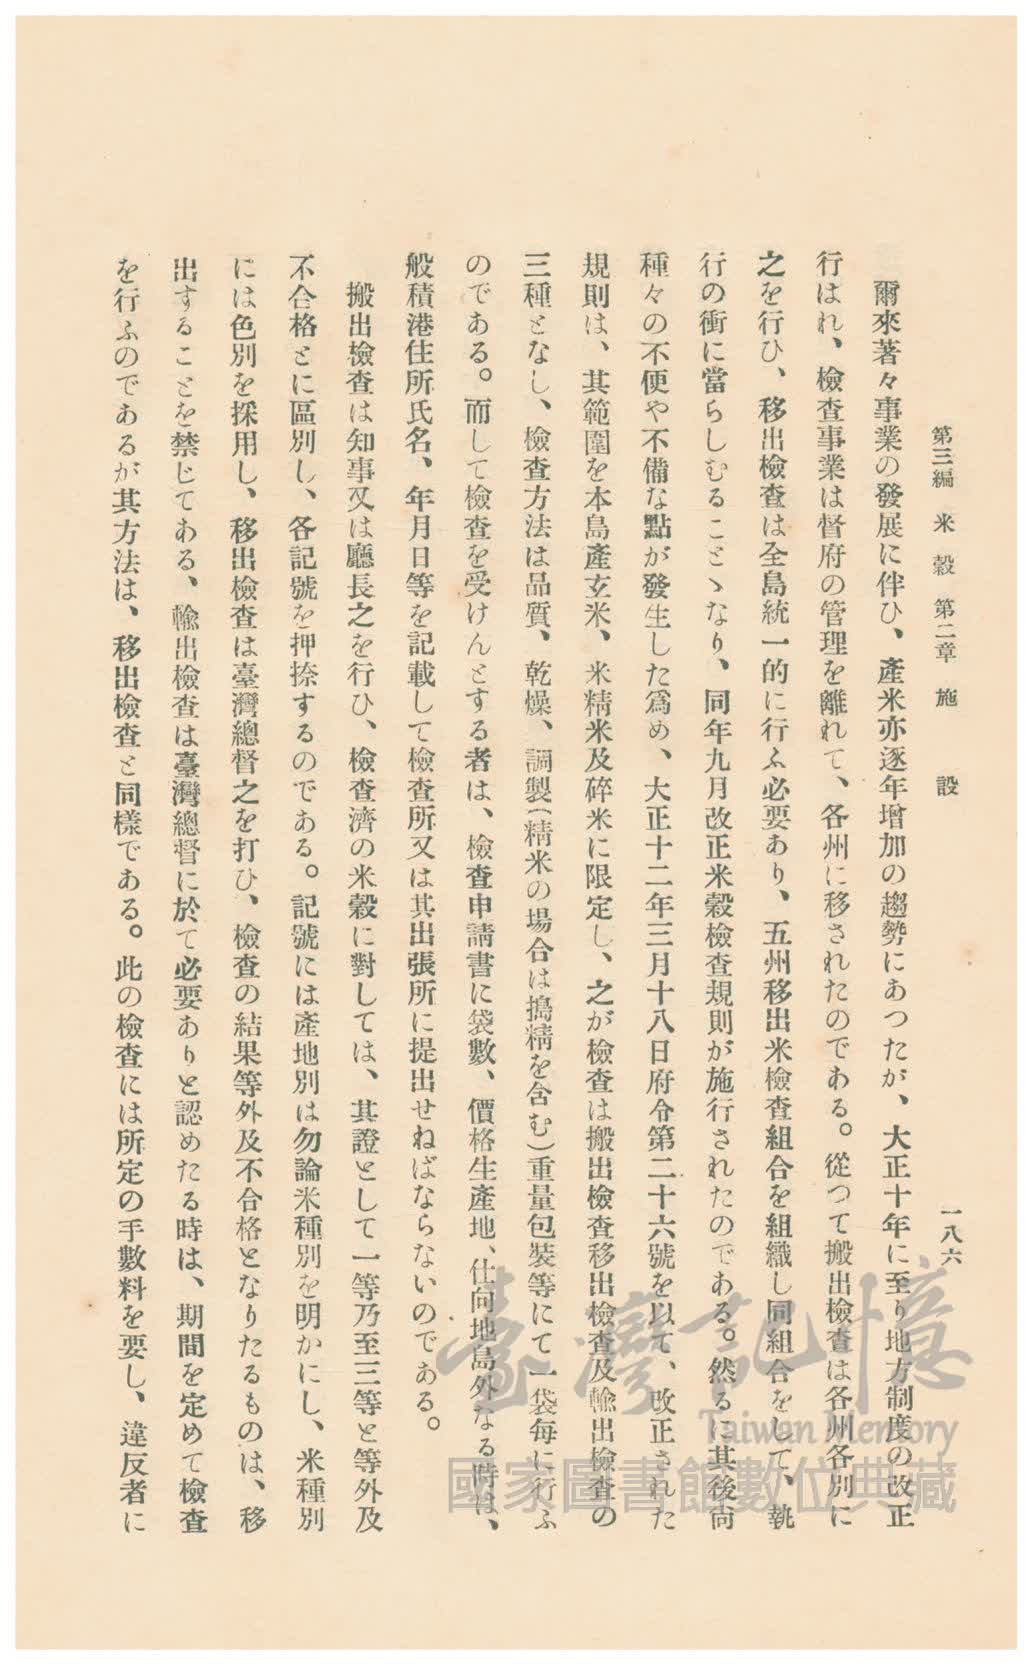 第三編　米穀　第二章　施設
一八六
爾來著々事業の發展に伴ひ、產米亦逐年增加の趨勢にあつたが、大正十年に至り地方制度の改正
行はれ、檢查事業は督府の管理を離れて、各州に移されたのである。從つて搬出檢查は各州各別に
之を行ひ、移出檢查は全島統一的に行ふ必要あり、五州移出米檢查組合を組織し同組合をして、執
行の衝に當らしむることゝなり、同年九月改正米穀檢查規則が施行されたのである。然るに其後尙
種々の不便や不備な點が發生した爲め、大正十二年三月十八日府令第二十六號を以て、改正された
規則は、其範圍を本島產玄米、米精米及碎米に限定し、之が檢查は搬出檢查移出檢查及輸出檢查の
三種となし、檢查方法は品質、乾燥、調製(精米の場合は搗精を含む)重量包裝等にて一袋每に行ふ
のである。而して檢查を受けんとする者は、檢查申請書に袋數、價格生產地、仕向地島外なる時は、
般積港住所氏名、年月日等を記載して檢查所又は其出張所に提出せねばならないのである。
搬出檢查は知事又は廳長之を行ひ、檢查濟の米穀に對しては、其證として一等乃至三等と等外及
不合格とに區別し、各記號を押捺するのである。記號には產地別は勿論米種別を明かにし、米種別
には色別を採用し、移出檢查は臺灣總督之を打ひ、檢查の結果等外及不合格となりたるものは、移
出することを禁じてある、輸出檢查は臺灣總督に於て必要ありと認めたる時は、期間を定めて檢查
を行ふのであるが其方法は、移出檢查と同樣である。此の檢查には所定の手數料を要し、違反者に
臺灣記憶
Taiwan Memory
國家圖書館數位典藏